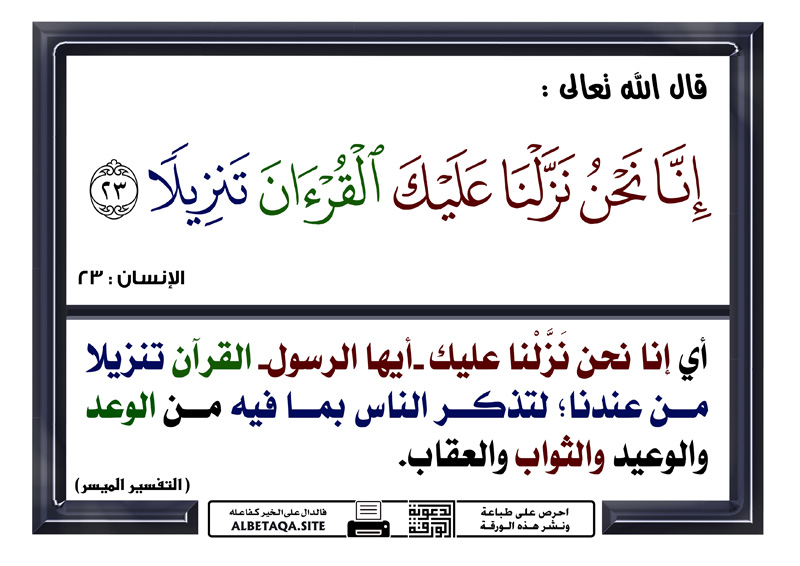 قال الله تعالى :
إِنَّا نَحْنُ نَزَّلْنَا عَلَيْكَ ٱلْقُرْءَانَ تَنزِيلًا ٢٣
الإنسان : ٢٣
أي إنا نحن نَزَّلْنا عليك ـأيها الرسولـ القرآن تنزيلا
من عندنا؛ لتذكر الناس بما فيه من الوعد
والوعيد والثواب والعقاب.
(التفسير الميسر)
احرص على طباعة
ونشر هذه الورقة
الورقة الدعوية
فالدال على الخير كفاعله
ALBETAQA.SITE